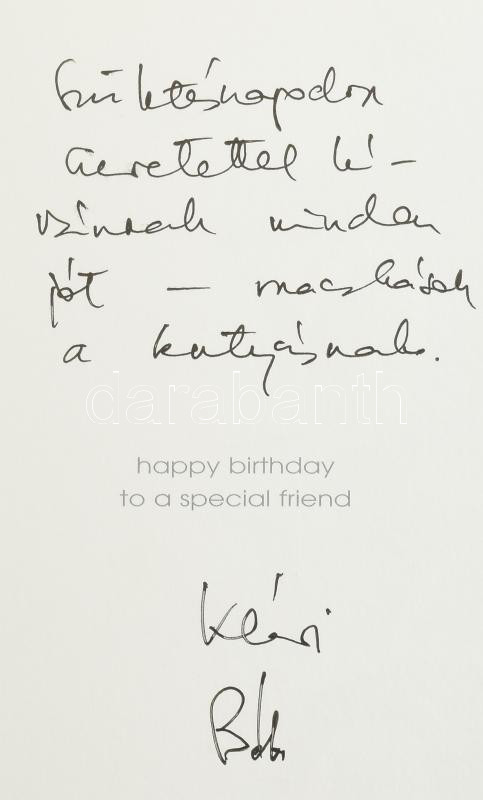 Születésnapodon
szeretettel kí-
vánnak minden
jót — macskások
a kutyásnak.
darabanth
happy birthday
to a special friend
Klári